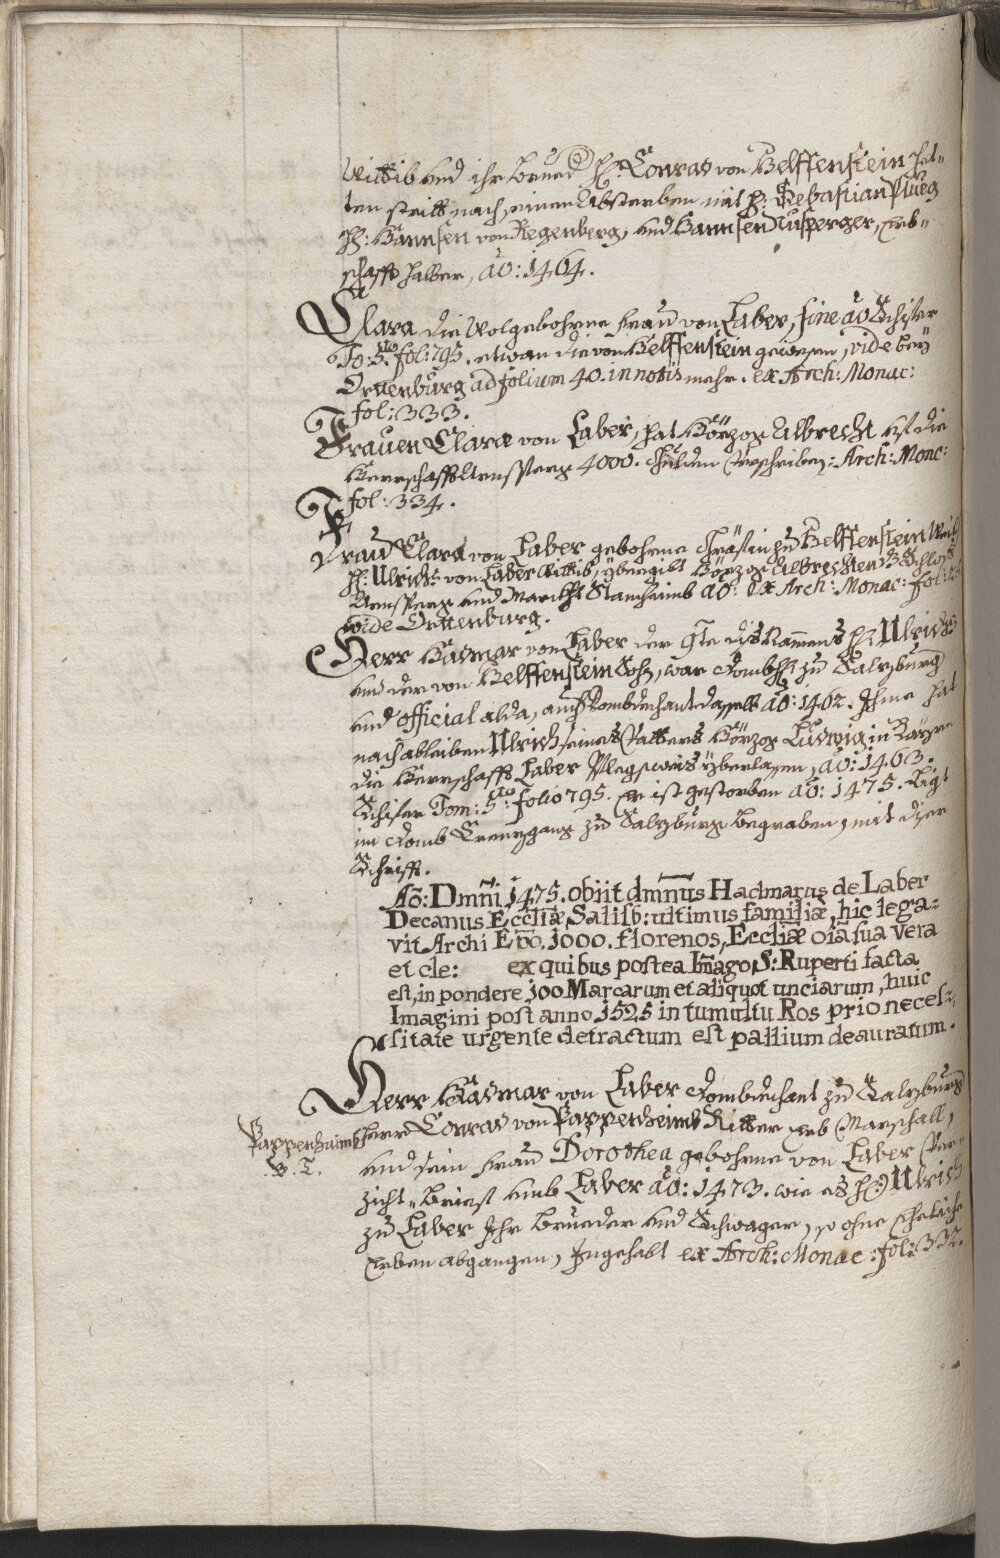 Wittib und ihr brued H: Conrad von Helffenstein het-
ten stritt nach seinem Absterben mit H: Sebastian Plueg
H: Hannsen von Regenberg, und Hannsen Nusperger, erb-
schafft halber, aō: 1464.
Clara die Wolgebohrne frau von Laber, sine aō Schifer
To: 5.to fol: 795. etwan die von Helffenstein gewesen, vide beÿ
Ortenburg ad folium 40. in notis mehr. ex Arch: Monac:
fol: 333.
Frauen Clara von Laber, hat Hörzog Albrecht auf die
Herrschafft Arnsperg 4000. gulden verschriben: Arch: Monc:
fol: 334.
Frau Clara von Laber gebohrne Gräfin zu Helffenstein Weil:
H: Ulrichs von Laber Wittib, ybergibt Hörzog Albrechten dz Schloß
Arnsperg und Marckht Stamhaimb aō: ex Arch: Monac: fol:
vide Ortenburg.
Herr Hadmar von Laber der 9te diß Namens H: Ulrichs
und der von Helffenstein Sohn, war Dombhr zu Salzburg
und official alda, auch Dombdechant daselbst aō: 1462. Ihme hat
nach ableiben Ulrich seines Vatters Hörzog Ludwig in Bayrn
die Herrschafft Laber Pflegsweis yberlassen, aō: 1463.
Schifer Tom: 5.to folio 795. er ist gestorben aō: 1475. ligt
im Domb Creuzgang zu Salzburg begraben, mit diser
Schrifft.
Aō: Dm̄ni 1475. obiit dm̄nus Hadmarus de Laber
Decanus Eccliæ Salisb: ultimus familiæ, hic lega=
vit Archi Epo. 1000. florenos, Eccliæ oīa sua vera
et cle: ex quibus postea Imago S: Ruperti facta
est, in pondere 100 Marcarum et aliquot unciarum, huic
Imagini post anno 1525 in tumultu Ros prio neces=
sitate urgente detractum est pallium deauratum.
Herr Hadmar von Laber Dombdechant zu Salzburg
Pappenhaimb
B. T.
Herr Conrad von Pappenheimb Ritter erb Marschall,
und sein frau Dorothea gebohrne von Laber Ver-
zicht-brieff umb Laber aō: 1473. wie es H: Ulrich
zu Laber Ihr brueder und Schwager, so ohne Eheliche
erben abgangen, Ingehabt ex Arch: Monac: fol: 332.